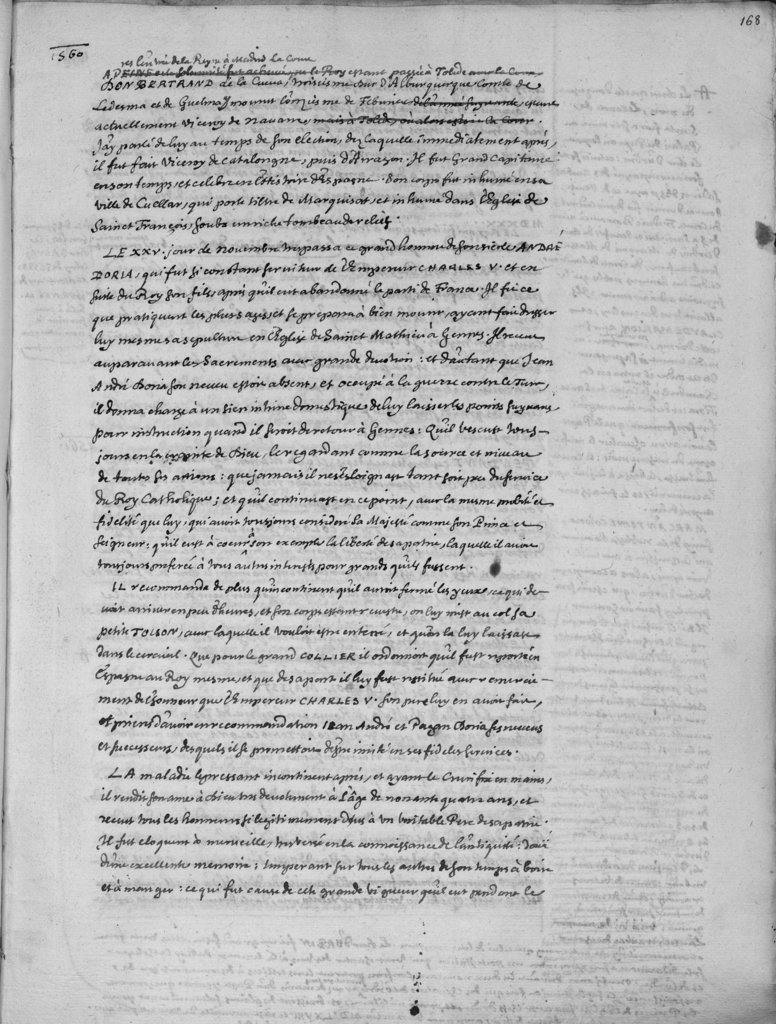 168
1560
APEINE et la solemnité fut achevée, que le Roy estant passé à Tolede avec la Cour
DON BERTRAND de la Cueva, troisiesme Duc d'Alburquerque, Comte de
Ledesma et de Guelma, mourut l'onziesme de Febvrier de l'année suyvante, estant
actuellement Viceroy de Navarre, mais à Tolede, où alors estoit la Cour.
J'ay parlé de luy au temps de son election, dez laquelle immediatement apres,
il fut fait Viceroy de Catalongne, puis d'Arragon, Il fut Grand Capitaine
en son temps, et celebre en l'histoire d'Espagne. Son corps fut inhumé en sa
ville de Cuellar, qui porte tiltre de Marquisat, et inhumé dans l'Eglise de
Sainct François, soubs un riche tombeau de relief.
LE XXV. jour de novembre trespassa ce grand homme de son siecle ANDRÉ
DORIA, qui fut si constant serviteur de l'Empereur CHARLES V. et en
suite du Roy son fils, apres qu'il eut abandonné le parti de France. Il fit ce
que pratiquent les plus sages, et se prepara à bien mourir, ayant fait dresser
luy mesme sa sepulture en l'Eglise de Sainct Mathieu à Gennes. Il receut
auparavant les Sacrements avec grande devotion : et d'autant que Jean
André Doria son neveu estoit absent, et occupé à la guerre contre le Turc,
il donna charge à un sien intime domestique, de luy laisser les points suyvans
pour instruction quand il seroit de retour à Gennes : Qu'il vescust tous-
jours en la crainte de Dieu, le regardant comme la source et niveau
de toutes ses actions : que jamais il ne s'esloignast tant soit peu du service
du Roy Catholique ; et qu'il continuast en ce point, avec la mesme
fidelité que luy, qui avoit tousjours consideré Sa Majesté comme son Prince et
Seigneur : qu'il eust à coeur à son exemple la liberté de sa patrie, laquelle il avoit
tousjours preferée à tous autres interests pour grands qu'ils fussent.
IL recommanda de plus qu'incontinent qu'il auroit fermé les yeux, ce qui de-
voit arriver en peu d'heures, et son corps estant revestu, on luy mist au col sa
petite TOISON, avec laquelle il vouloit estre enterré, et qu'on la luy laissast
dans le cercueil. Que pour le grand COLLIER il ordonnoit qu'il fust reporté en
Espagne au Roy mesme, et que de sa part il luy fust restitué avec remercie-
ment de l'honneur que l'Empereur CHARLES V. son pere luy en avoit fait,
et priere d'avoir en recommendation Jean André et Pagan Doria ses neveux
et successeurs, desquels il se promettoit d'estre imité en ses fideles services.
LA maladie le pressant incontinent apres, et ayant le Crucifix en mains,
il rendit son ame à Dieu tres devotement à l'âge de nonante quatre ans, et
receut tous les honneurs si legitimement deus à un veritable Pere de sa patrie.
Il fut eloquent à merveilles, tres versé en la connoissance de l'antiquité : doüé
d'une excellente memoire ; temperant sur tous les autres de son temps à boire
et à manger : ce qui fut cause de cete grande vigueur qu'il eut pendant le